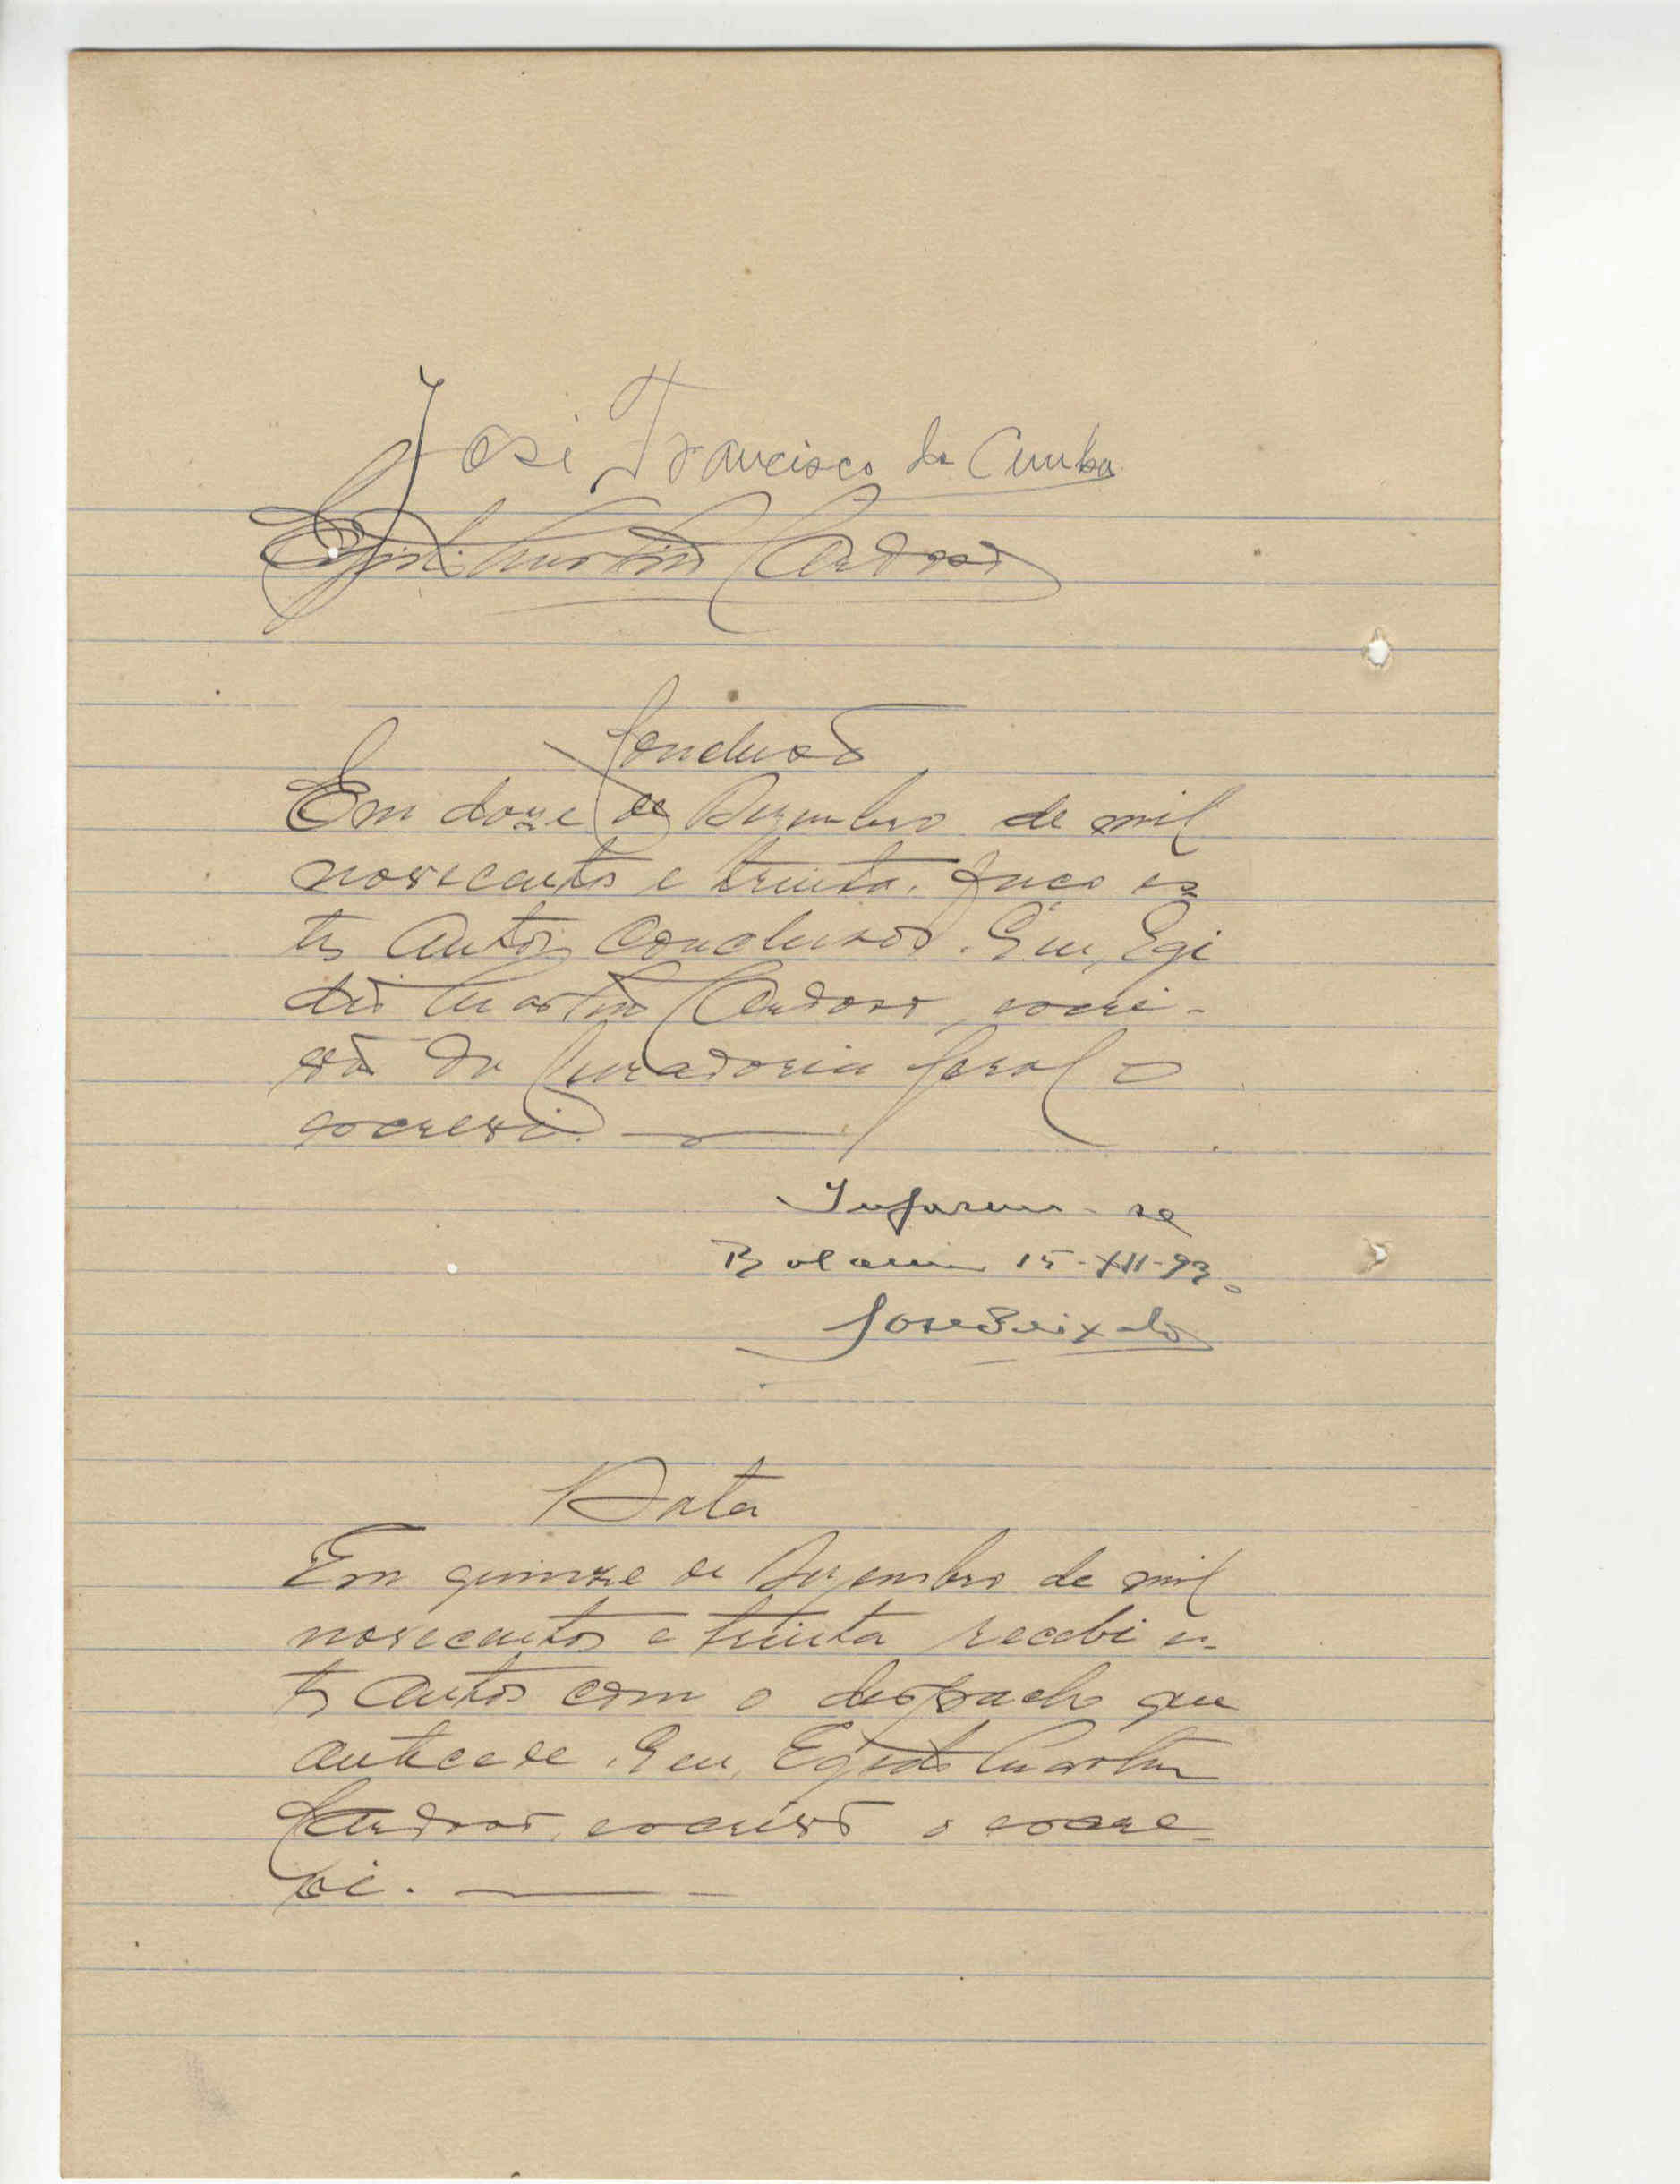 José Francisco da Cunha
Egidio Martins Cardoso
Conclusão
Em doze de Dezembro de mil
novecentos e trinta, faço es-
tes autos conclusos. Eu, Egi
dio Martins Cardoso, escri-
vão da Curadoria Geral o
escrevi.
Informe-se
Bolama 15-XII-930
José Peixoto
Data
Em quinze de Dezembro de mil
novecentos e trinta recebi es-
tes autos com o despacho que
antecede. Eu, Egidio Martins
Cardoso, escrivão o escre-
vi.